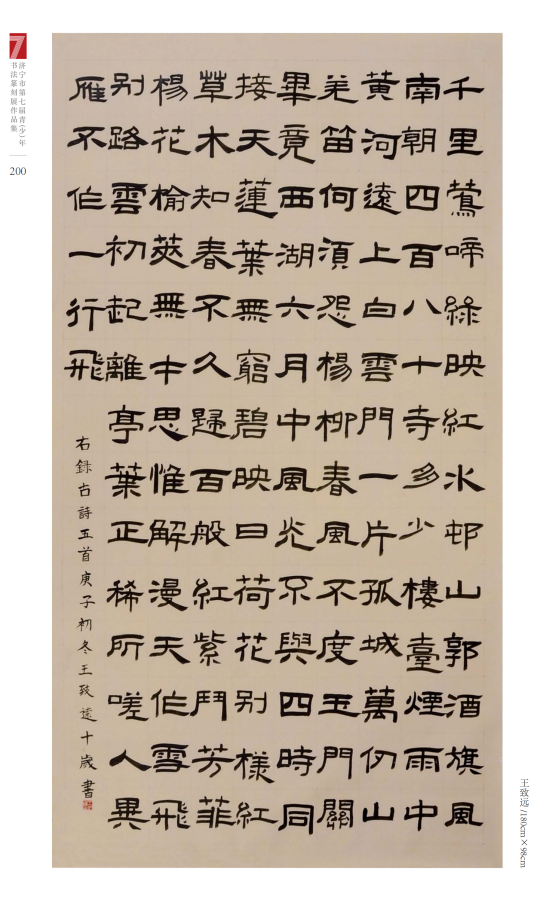 千里鶯啼綠映紅水邨山郭酒旗風
南朝四百八十寺多少樓臺煙雨中
黃河遠上白雲門一片孤城萬仞山
羌笛何須怨楊柳春風不度玉門關
畢竟西湖六月中風光不與四時同
接天蓮葉無窮碧映日荷花别樣紅
草木知春不久歸百般紅紫鬥芳菲
楊花榆莢無才思惟解漫天作雪飛
别路雲初起離亭葉正稀所嗟人異
雁不作一行飛
右録古詩五首庚子初冬王致遠十歲書
7
济宁市第七届青(少)年
书法篆刻展作品集
200
王致远/180cm×98cm